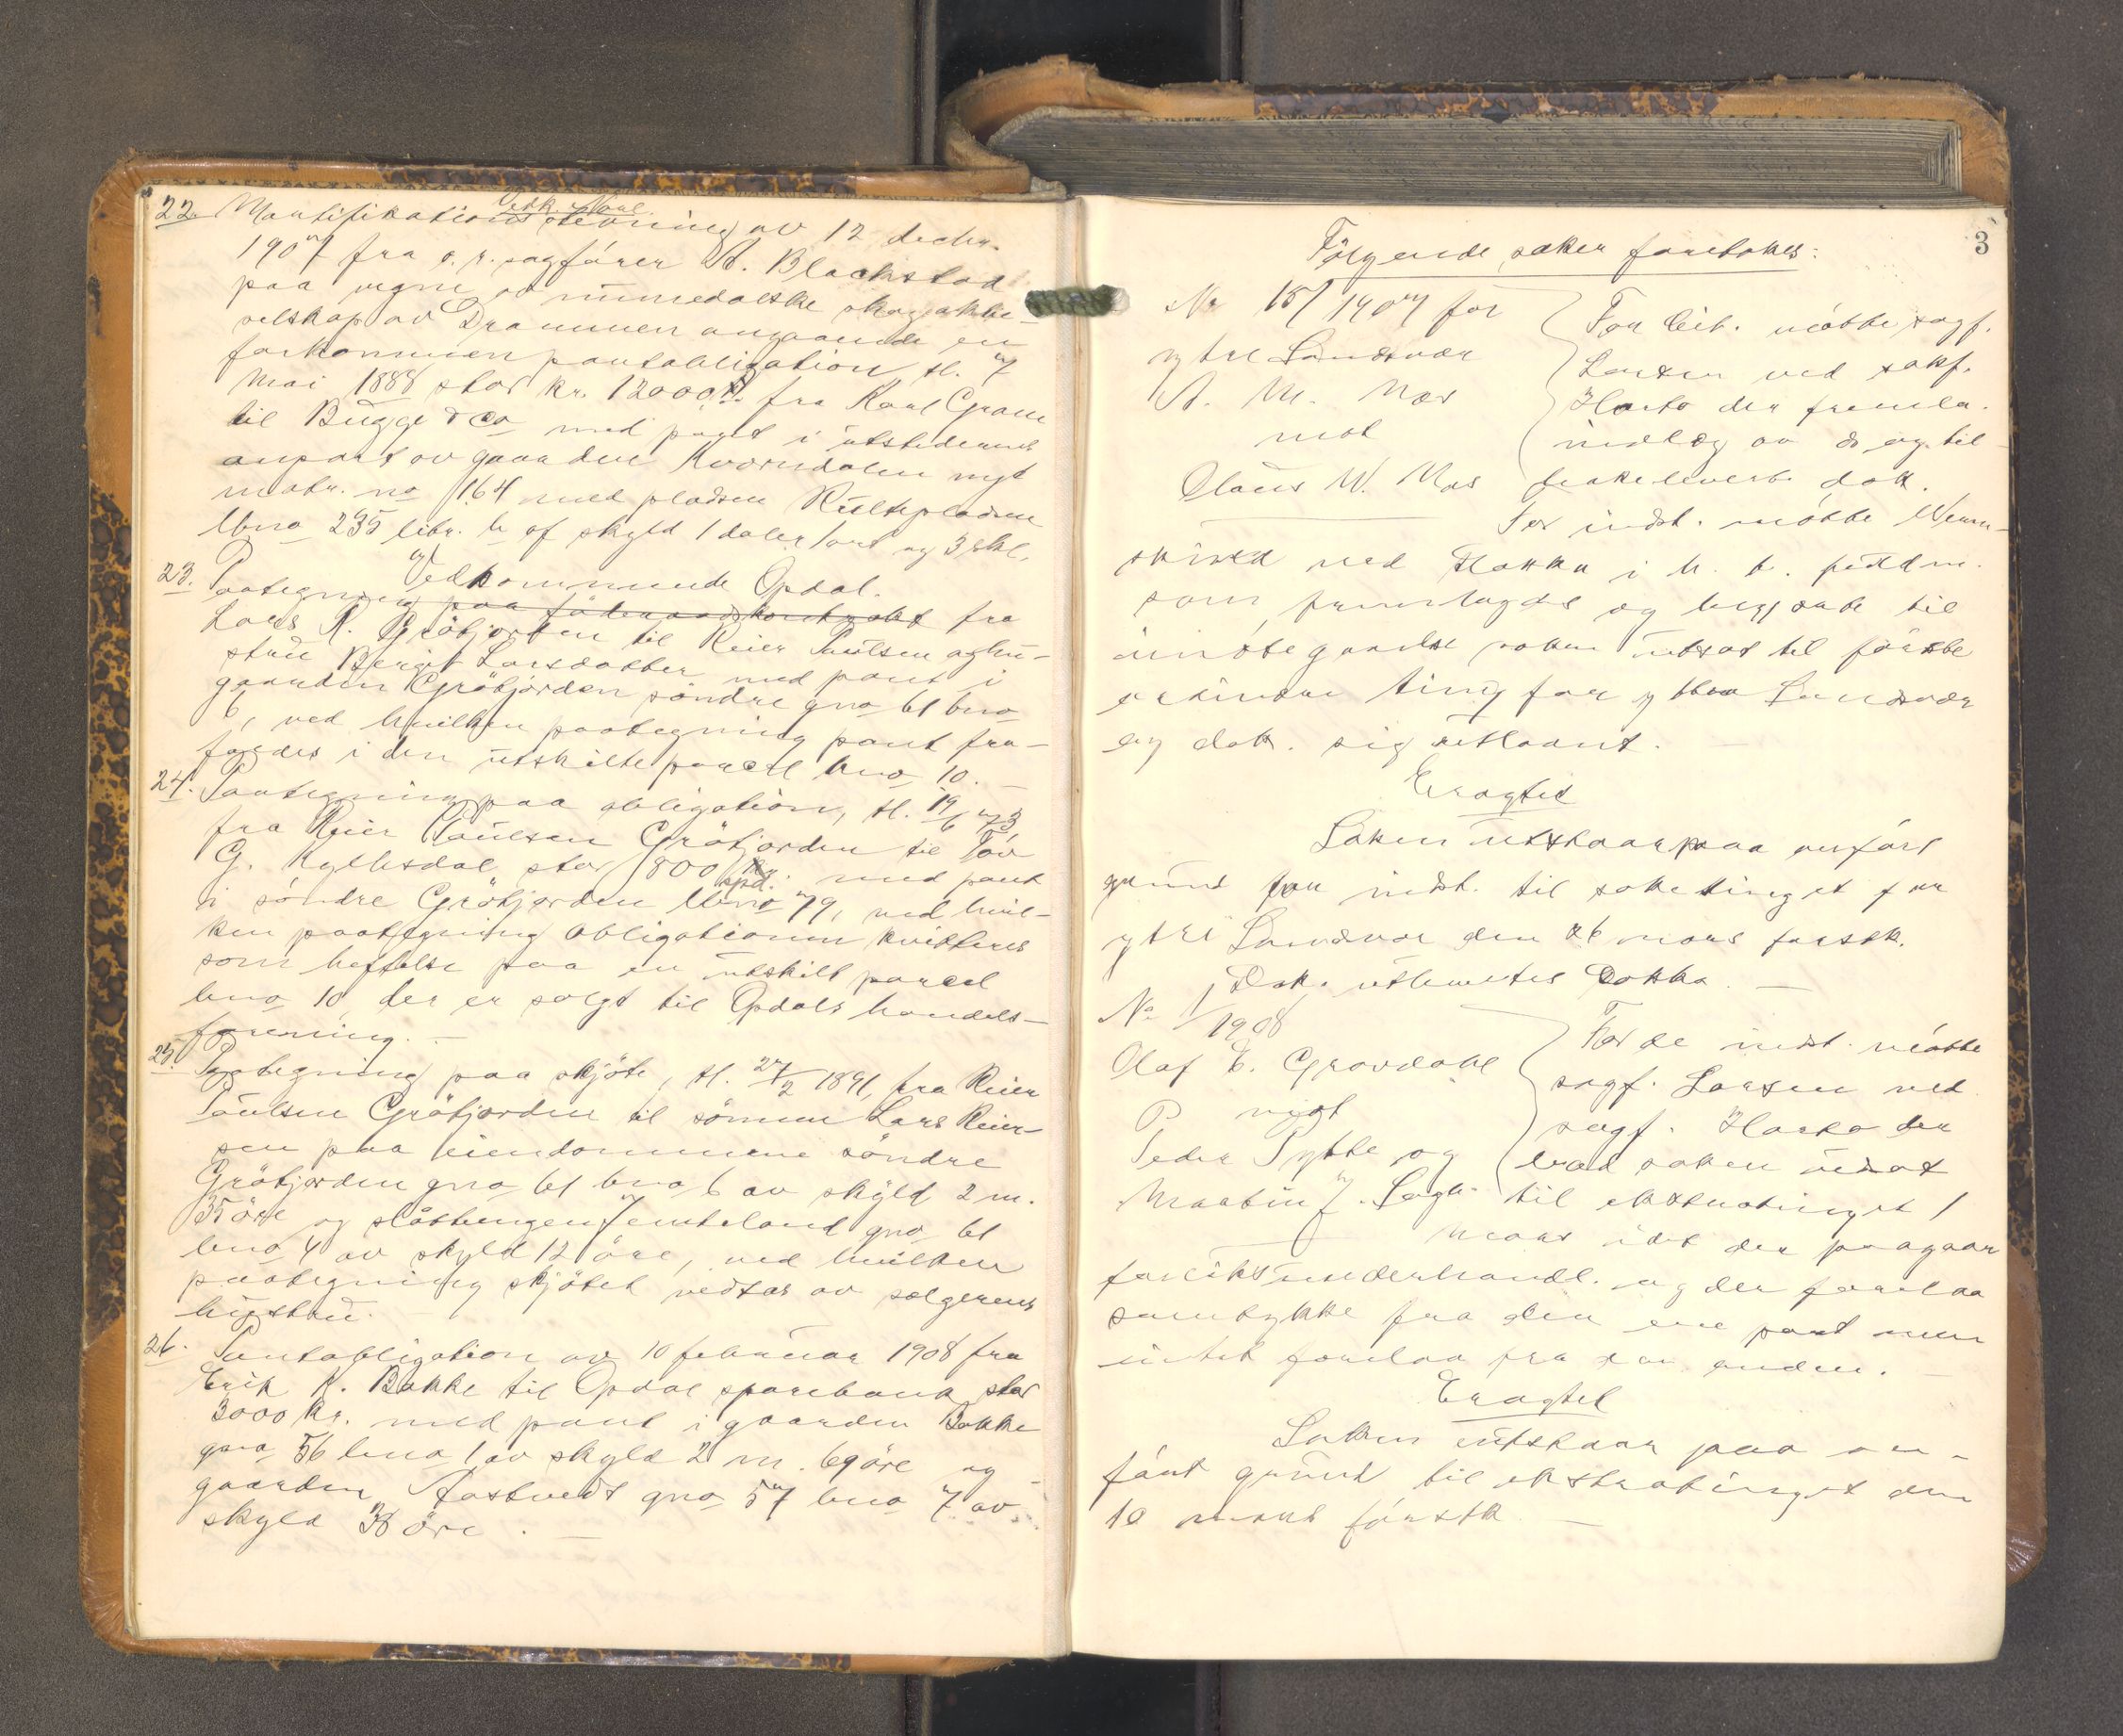 22. Mortifikationsstevning av 12 decbr.
Vedk. Naul.
1907 fra o.r.sagfører A. Blackstad
paa vegne av numedalske skogaktie-
selskap av Drammen angaaende en
forkommen pantobligation tl. 7
mai 1888 stor kr. 12000 fra Karl Gram
til Bugge & Co med pant i utstederens
anpart av gaarden Kvorndalen nyt
matr. no 164 med pladsen Rullepladsen
lbno 235 litr. b af skyld 1 daler 1 ort og 3 skl.
Vedkommende Opdal.
23. Paategning paa föderaadskontrakt fra
Lars R. Grötjorden til Reier Paulsen og hu-
stru Bergit Larsdatter med pant i
gaarden Grötjorden söndre gno 61 bno
6, ved hvilken paategning pant fra-
faldes i den utskilte parcel bno 10.
24. Paategning paa obligation, tl. 19/6 73,
fra Reier Paulsen Grötjorden til Tov
G. Kyllesdal, stor 800 spd. med pant
i söndre Grötjorden lbno 79, ved hvil-
ken paategning obligationen kvitteres
som heftelse paa en utskilt parcel
bno 10, der er solgt til Opdals handels-
forening.
25. Paategning paa skjöte, tl. 27/2 1891, fra Reier
Paulsen Grötjorden til sönnen Lars Reier-
sen paa eiendommene söndre
Grötjorden gno 61 bno 6 av skyld 2 m.
35 öre og slåttengen Jemteland gno 61
bno 4 av skyld 12 öre, ved hvilken
paategning skjötet vedtas av sælgerens
hustru.
26. Pantobligation av 10 februar 1908 fra
Erik K. Bakke til Opdal sparebank stor
3000 kr. med pant i gaarden Bakke
gno 56 bno 1 av skyld 2 m. 69 öre og
gaarden Aastvedt gno 57 bno 7 av
skyld 38 öre.
3
Følgende saker foretokes:
No 15/1907 for
ytre Sandsvær
A. M. Moes
mot
Claus W. Moes
For cit. møtte sagf.
Larsen ved sakf.
Harto der fremla.
indlæg av d.d. og til-
bakeleverte dok.
For indst. møtte Wenn-
skivel ved Hokka i h. t. fuldm.
som fremlagdes og begjærte til
imøtegaaelse saken utsat til første
ordinære ting for ytre Sandsvær
og dok. sig utlaant.
Eragtet
Saken utstaar paa anført
grund for indst. til saketinget for
ytre Sandsvær den 26 mars førstk.
Dok. utlaantes Hokka.
No 1/1908
Olaf E. Grovdahl
mot
Peder Pytte og
Martin J. Legh.
For de indst. møtte
sagf. Larsen ved
sagf. Harto der
bad saken utsat
til ekstratinget 1
mars idet der paagaar
forliksunderhandl. og der forelaa
samtykke fra den ene part men
intet forelaa fra den anden.
Eragtet
Saken utstaar paa an-
ført grund til ekstratinget den
10 mars førstk.